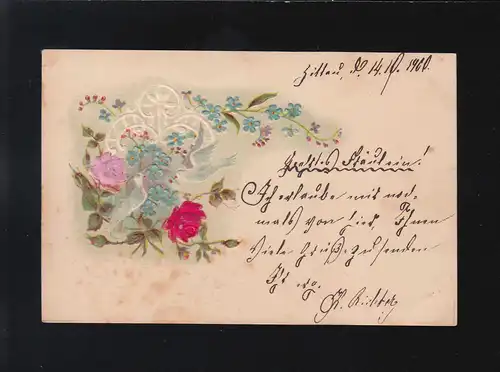 Zittau, d. 14.10.1900.
Geehrtes Fräulein!
Ich erlaube mir noch-
mals von hier, Ihnen
viele Grüße zu senden
Ihr
K. Richter